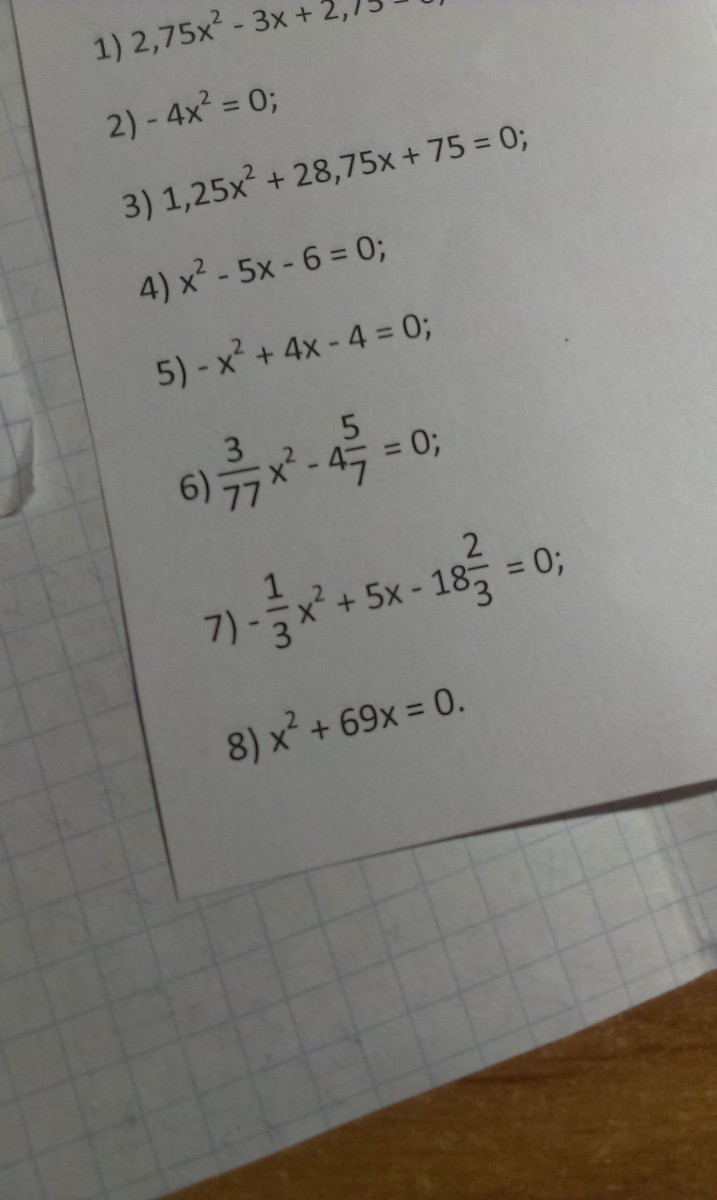 1) 2,75x² - 3x + 2,75 = 0;
2) - 4x² = 0;
3) 1,25x² + 28,75x + 75 = 0;
4) x² - 5x - 6 = 0;
5) - x² + 4x - 4 = 0;
6) 3/77 x² - 4 5/7 = 0;
7) - 1/3 x² + 5x - 18 2/3 = 0;
8) x² + 69x = 0.